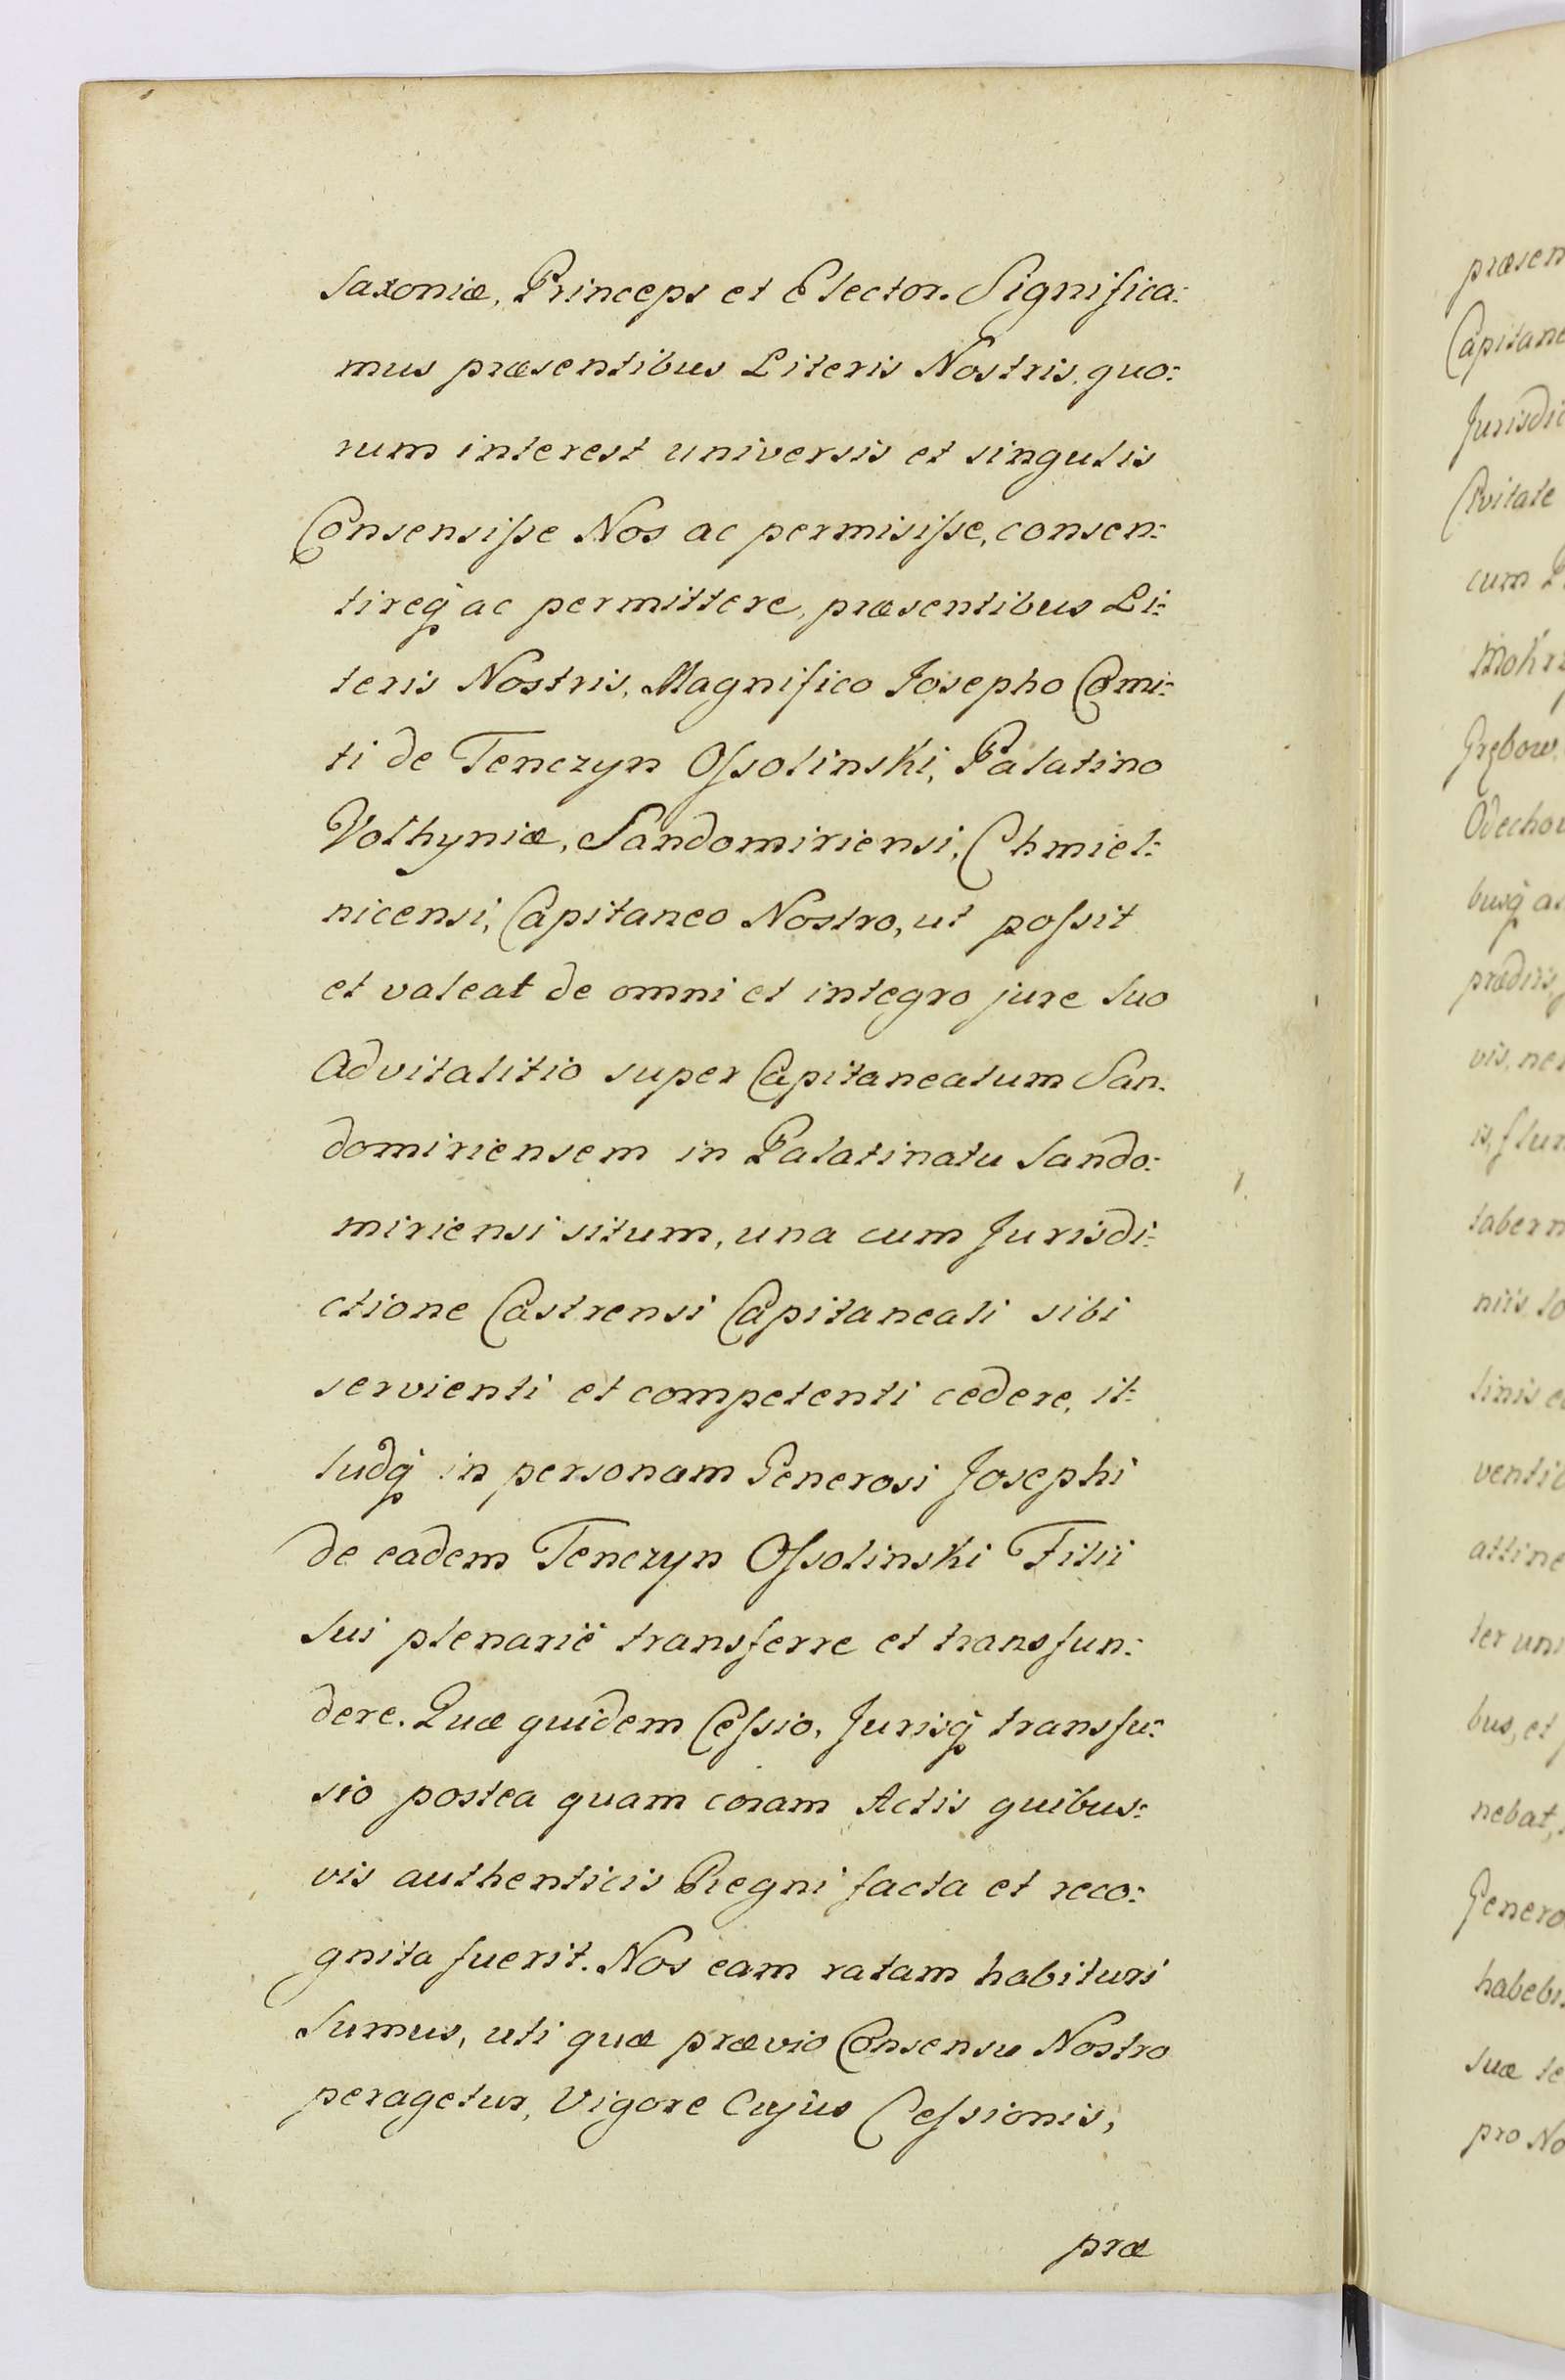 Saxoniæ, Princeps et Elector. Significa:
mus præsentibus Literis Nostris, quo:
rum interest universis et singulis
Consensiſse Nos ac permisiſse, consen:
tireq̃ ac permittere, præsentibus Li:
teris Nostris, Magnifico Josepho Comi:
ti de Tenczyn Oſsolinski, Palatino
Volhyniæ, Sandomiriensi, Chmiel:
nicensi, Capitaneo Nostro, ut poſsit
et valeat de omni et integro jure Suo
Advitalitio super Capitaneatum San:
domiriensem in Palatinatu Sando:
miriensi situm, una cum Jurisdi:
ctione Castrensi Capitaneali sibi
servienti et competenti cedere, il:
ludq̃ in personam Generosi Josephi
de eadem Tenczyn Oſsolinski Filii
Sui plenariè transferre et transfun:
dere. Quæ quidem Ceſsio, Jurisq̃ transfu:
sio postea quam coram Actis quibus:
vis authenticis Regni facta et reco:
gnita fuerit. Nos eam ratam habituri
Sumus, uti quæ prævio Consensu Nostro
peragetur, Vigore Cujus Ceſsionis,
præ
præsen
Capitane
Jurisdic
Civitate
cum P
Mokrz
Grębow
Odechow
busq̃ a
prædiis
vis, ne
is, flu
tabern
niis, lo
linis e
ventib
attine
ter uni
bus, et
nebat,
Genero
habebi
suæ te
pro No